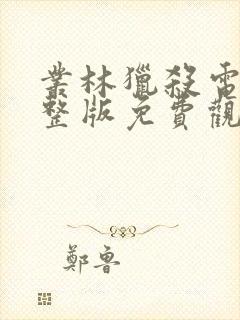 叢林獵殺電
整版免費觀
鄭魯